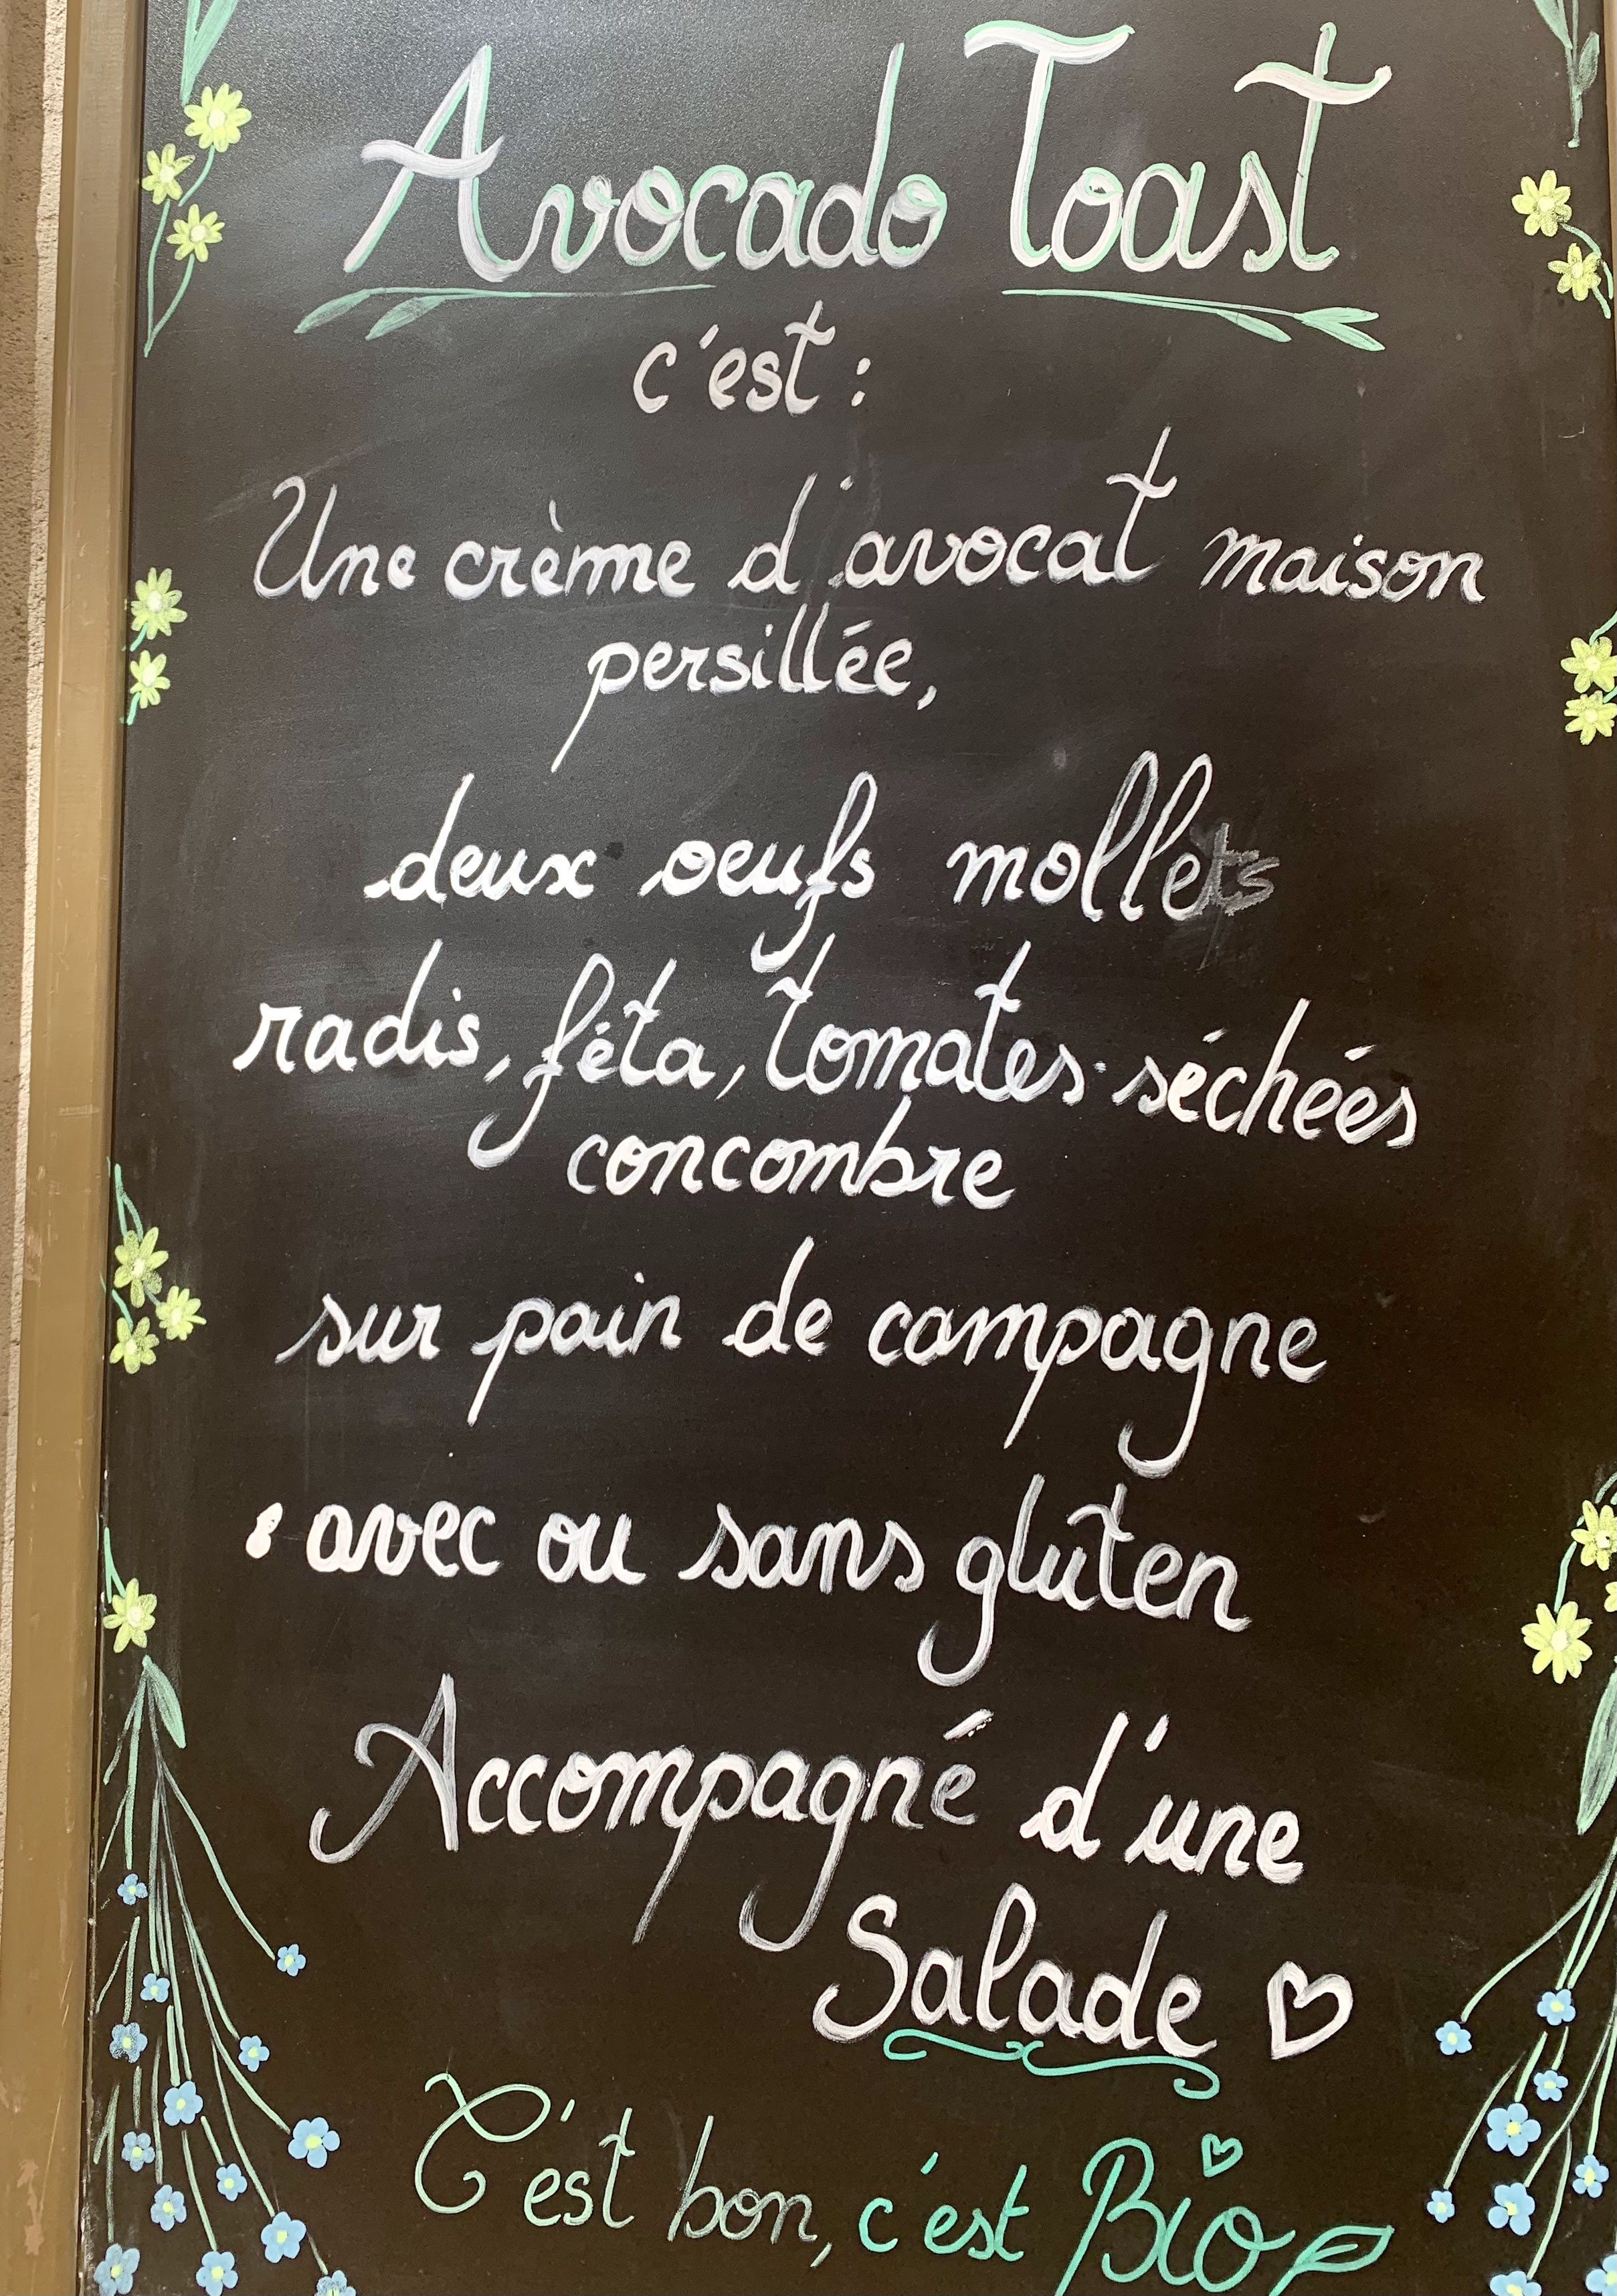 Avocado Toast
c'est :
Une crème d'avocat maison
persillée,
deux oeufs mollets
radis, féta, tomates séchées
concombre
sur pain de campagne
• avec ou sans gluten
Accompagné d'une
Salade ♡
C'est bon, c'est Bio